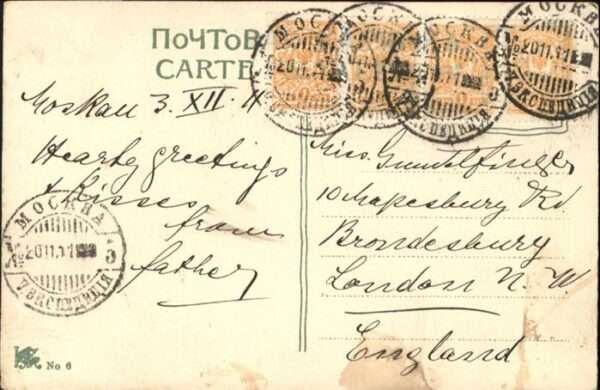 ПОЧТОВ
CARTE
МОСКВА
20.11.11
7 ЭКСПЕДИЦІЯ
МОСКВА
20.11.11
7 ЭКСПЕДИЦІЯ
Moskau 3. XII. 11
Hearty greetings
& Kisses
from
father
Miss. Gundelfinger
10 Mapesbury Rd.
Brondesbury
London N. W.
England
МОСКВА
20.11.11
7 ЭКСПЕДИЦІЯ
No 6